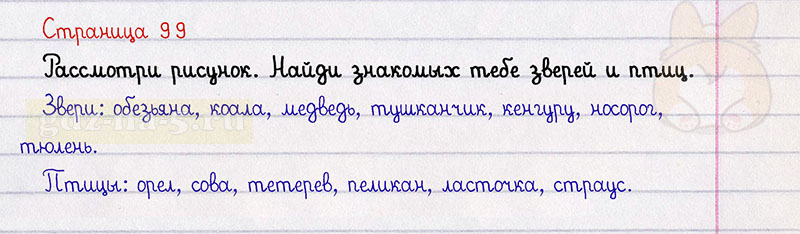 Страница 99
Рассмотри рисунок. Найди знакомых тебе зверей и птиц.
Звери: обезьяна, коала, медведь, тушканчик, кенгуру, носорог,
тюлень.
Птицы: орел, сова, тетерев, пеликан, ласточка, страус.